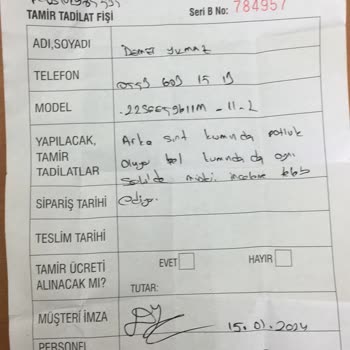 TAMİR TADİLAT FİŞİ
Seri B No: 784957
ADI,SOYADI
Demet Yılmaz
TELEFON
0553 603 15 13
MODEL
YAPILACAK, TAMİR TADİLATLAR
Arka sırt kısmında potluk
oluyor bel kısmında da aynı
Şekilde
inceleme
ediyor.
SİPARİŞ TARİHİ
TESLİM TARİHİ
TAMİR ÜCRETİ ALINACAK MI?
EVET
HAYIR
TUTAR:
MÜŞTERİ İMZA
15.01.2024
PERSONEL